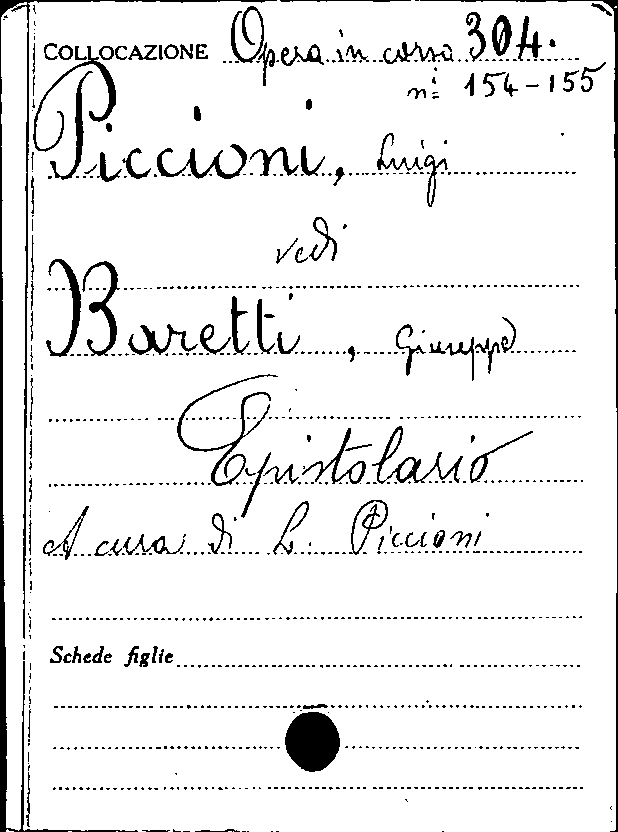 COLLOCAZIONE Opera in corso 304.
n.i 154-155
Piccioni, Luigi
vedi
Baretti, Giuseppe
Epistolario
A cura di L. Piccioni
Schede figlie